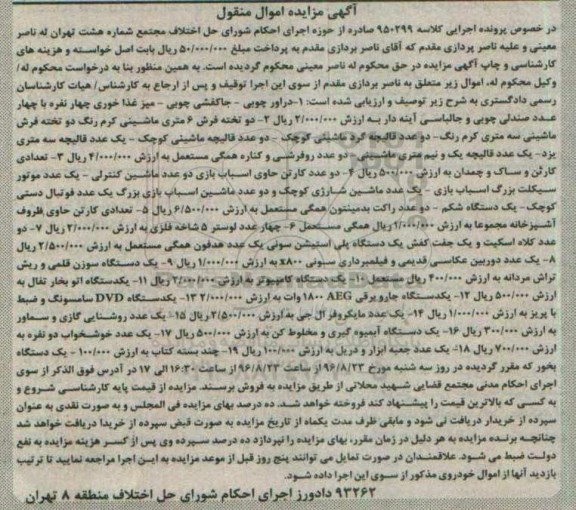 آگهی مزایده اموال منقول
در خصوص پرونده اجرایی کلاسه ۹۵۰۳۹۹ صادره از حوزه اجرای احکام شورای حل اختلاف مجتمع شماره هشت تهران له ناصر
معینی و علیه ناصر پردازی مقدم که آقای ناصر پردازی مقدم به پرداخت مبلغ ۵۰/۰۰۰/۰۰۰ ریال بابت اصل خواسته و هزینه های
کارشناسی و چاپ آگهی مزایده در حق محکوم له ناصر معینی محکوم گردیده است. به همین منظور بنا به درخواست محکوم له/
وکیل محکوم له، اموال زیر متعلق به ناصر پردازی مقدم از سوی این اجرا توقیف و پس از ارجاع به کارشناس/ هیات کارشناسان
رسمی دادگستری به شرح زیر توصیف و ارزیابی شده است: ۱-دراور چوبی - جاکفشی چوبی - میز غذا خوری چهار نفره با چهار
عدد صندلی چوبی و جالباسی آینه دار به ارزش ۲/۰۰۰/۰۰۰ ریال ۲- دو تخته فرش ۶ متری ماشینی کرم رنگ دو تخته فرش
ماشینی سه متری کرم رنگ - دو عدد قالیچه گرد ماشینی کوچک - دو عدد قالیچه ماشینی کوچک - یک عدد قالیچه سه متری
یزد- یک عدد قالیچه یک و نیم متری ماشینی - دو عدد روفرشی و کناره همگی مستعمل به ارزش ۴/۰۰۰/۰۰۰ ریال ۳- تعدادی
کارتن و ساک و چمدان به ارزش ۵۰۰/۰۰۰ ریال ۴- دو عدد کارتن حاوی اسباب بازی دو عدد ماشین کنترلی - یک عدد موتور
سیکلت بزرگ اسباب بازی - یک عدد ماشین شارژی کوچک و دو عدد ماشین اسباب بازی بزرگ یک عدد فوتبال دستی
کوچک- یک دستگاه شکم - دو عدد راکت بدمینتون همگی مستعمل به ارزش ۶/۵۰۰/۰۰۰ ریال ۵- تعدادی کارتن حاوی ظروف
آشپزخانه مجموعا به ارزش ۱/۰۰۰/۰۰۰ ریال همگی مستعمل ۶- چهار عدد لوستر ۵ شاخه فلزی به ارزش ۲/۰۰۰/۰۰۰ ریال ۷- دو
عدد کلاه اسکیت و یک جفت کفش یک دستگاه پلی استیشن سونی یک عدد هدفون همگی مستعمل به ارزش ۲/۵۰۰/۰۰۰ ریال
۸- یک عدد دوربین عکاسی قدیمی و فیلمبرداری سونی x۸۰۰ به ارزش ۱/۰۰۰/۰۰۰ ریال ۹- یک دستگاه سوزن قلمی و ریش
تراش مردانه به ارزش ۴۰۰/۰۰۰ ریال مستعمل ۱۰- یک دستگاه کامپیوتر به ارزش ۲/۰۰۰/۰۰۰ ریال ۱۱- یکدستگاه اتو بخار تفال به
ارزش ۵۰۰/۰۰۰ ریال ۱۲- یکدستگاه جاروبرقی AEG ۱۸۰۰ وات به ارزش ۲/۰۰۰/۰۰۰ ۱۳- یکدستگاه DVD سامسونگ و ضبط
با پریز به ارزش ۱/۰۰۰/۰۰۰ ریال ۱۴- یک عدد مایکروفر ال جی به ارزش ۲/۵۰۰/۰۰۰ ریال ۱۵- یک عدد روشنایی گازی و سماور
به ارزش ۳۰۰/۰۰۰ ریال ۱۶- یک دستگاه آبمیوه گیری و مخلوط کن به ارزش ۵۰۰/۰۰۰ ریال ۱۷- یک عدد خوشخواب دو نفره به
ارزش ۷۰۰/۰۰۰ ریال ۱۸- یک عدد جعبه ابزار و دریل به ارزش ۱۰۰/۰۰۰ ریال ۱۹- چند بسته کتاب به ارزش ۱۰۰/۰۰۰ - یک دستگاه
بخور که مقرر گردیده در روز سه شنبه مورخ ۹۶/۸/۲۳ از ساعت ۹۶/۸/۲۳ از ساعت ۱۶:۳۰ الی ۱۷ در آدرس فوق الذکر از سوی
اجرای احکام مدنی مجتمع قضایی شهید محلاتی از طریق مزایده به فروش برسند. مزایده از قیمت پایه کارشناسی شروع و
به کسی که بالاترین قیمت را پیشنهاد کند فروخته خواهد شد. ده درصد بهای مزایده فی المجلس و به صورت نقدی به عنوان
سپرده از خریدار دریافت نی شود و مابقی ظرف مدت یکماه از تاریخ مزایده به صورت قبض سپرده از خریدا دریافت خواهد شد
چنانچه برنده مزایده به هر دلیل در زمان مقرر، بهای مزایده را نپردازد ده درصد سپرده وی پس از کسر هزینه مزایده به نفع
دولت ضبط می شود. علاقمندان در صورت تمایل می توانند پنج روز قبل از موعد مزایده به این اجرا مراجعه نمایند تا ترتیب
بازدید آنها از اموال خودروی مذکور از سوی این اجرا داده شود.
۹۳۲۶۲ دادورز اجرای احکام شورای حل اختلاف منطقه ۸ تهران